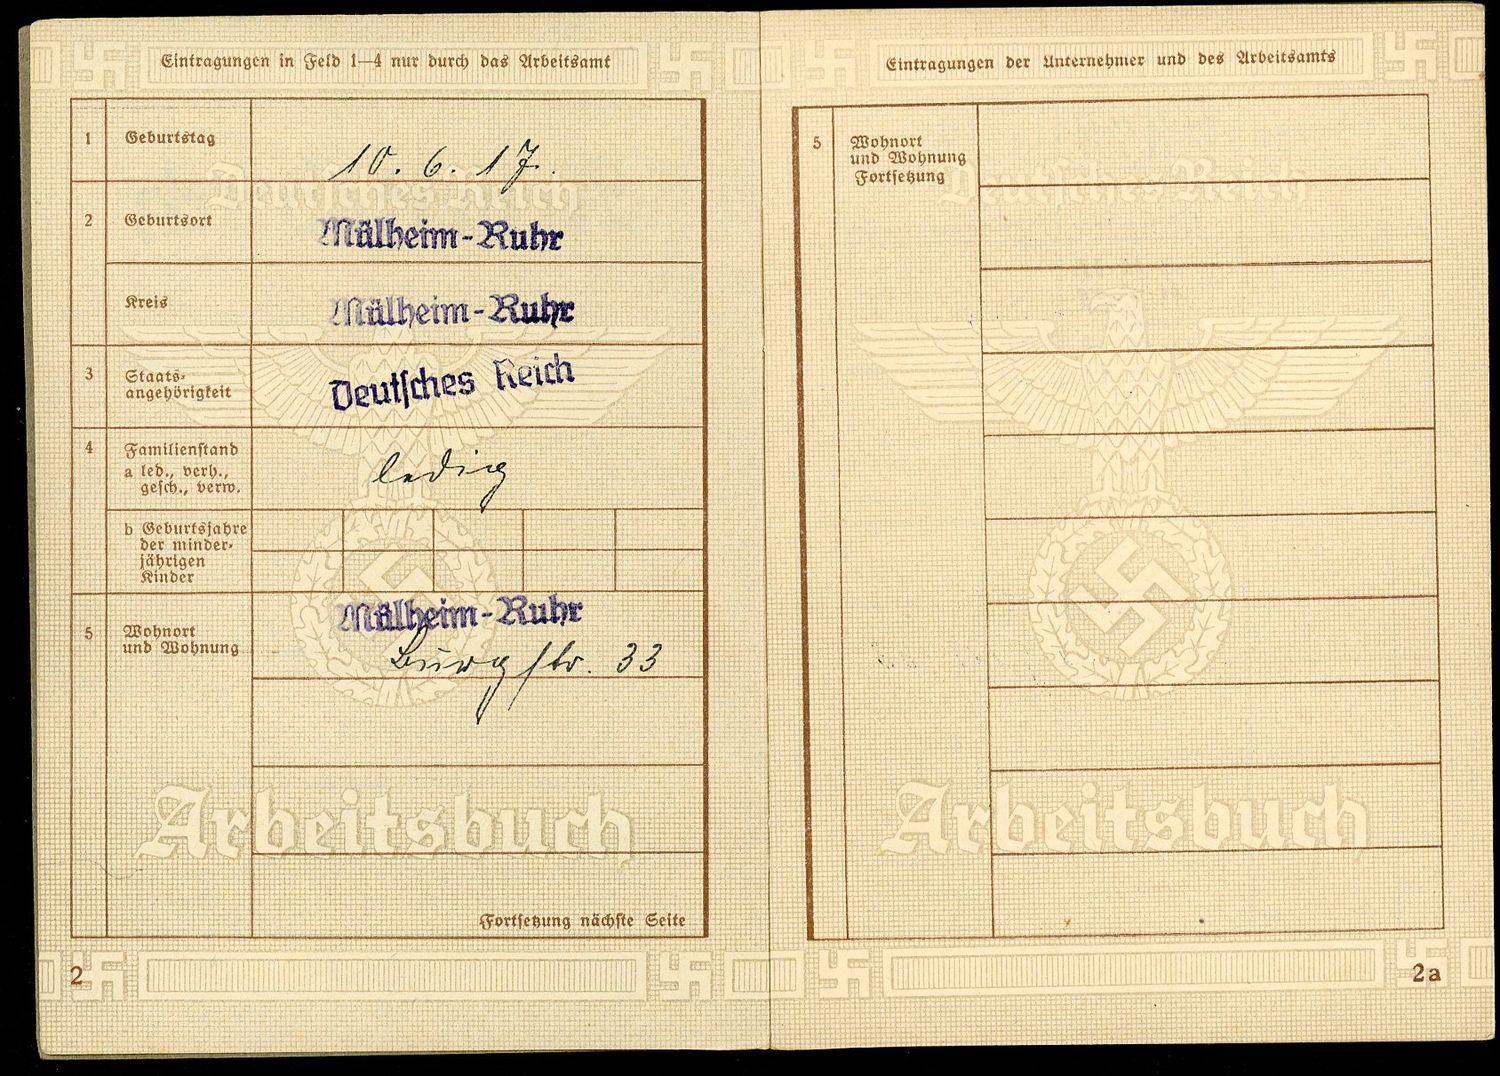 Eintragungen in Feld 1—4 nur durch das Arbeitsamt
1 Geburtstag 10. 6. 17.
Deutsches Reich
2 Geburtsort Mülheim-Ruhr
Kreis Mülheim-Ruhr
3 Staats-
angehörigkeit
Deutsches Reich
4 Familienstand
a led., verh.,
gesch., verw.
ledig
b Geburtsjahre
der minder-
jährigen
Kinder
Mülheim-Ruhr
5 Wohnort
und Wohnung
Burgstr. 33
Arbeitsbuch
Fortsetzung nächste Seite
2
Eintragungen der Unternehmer und des Arbeitsamts
5 Wohnort
und Wohnung
Fortsetzung
Deutsches Reich
Arbeitsbuch
2a